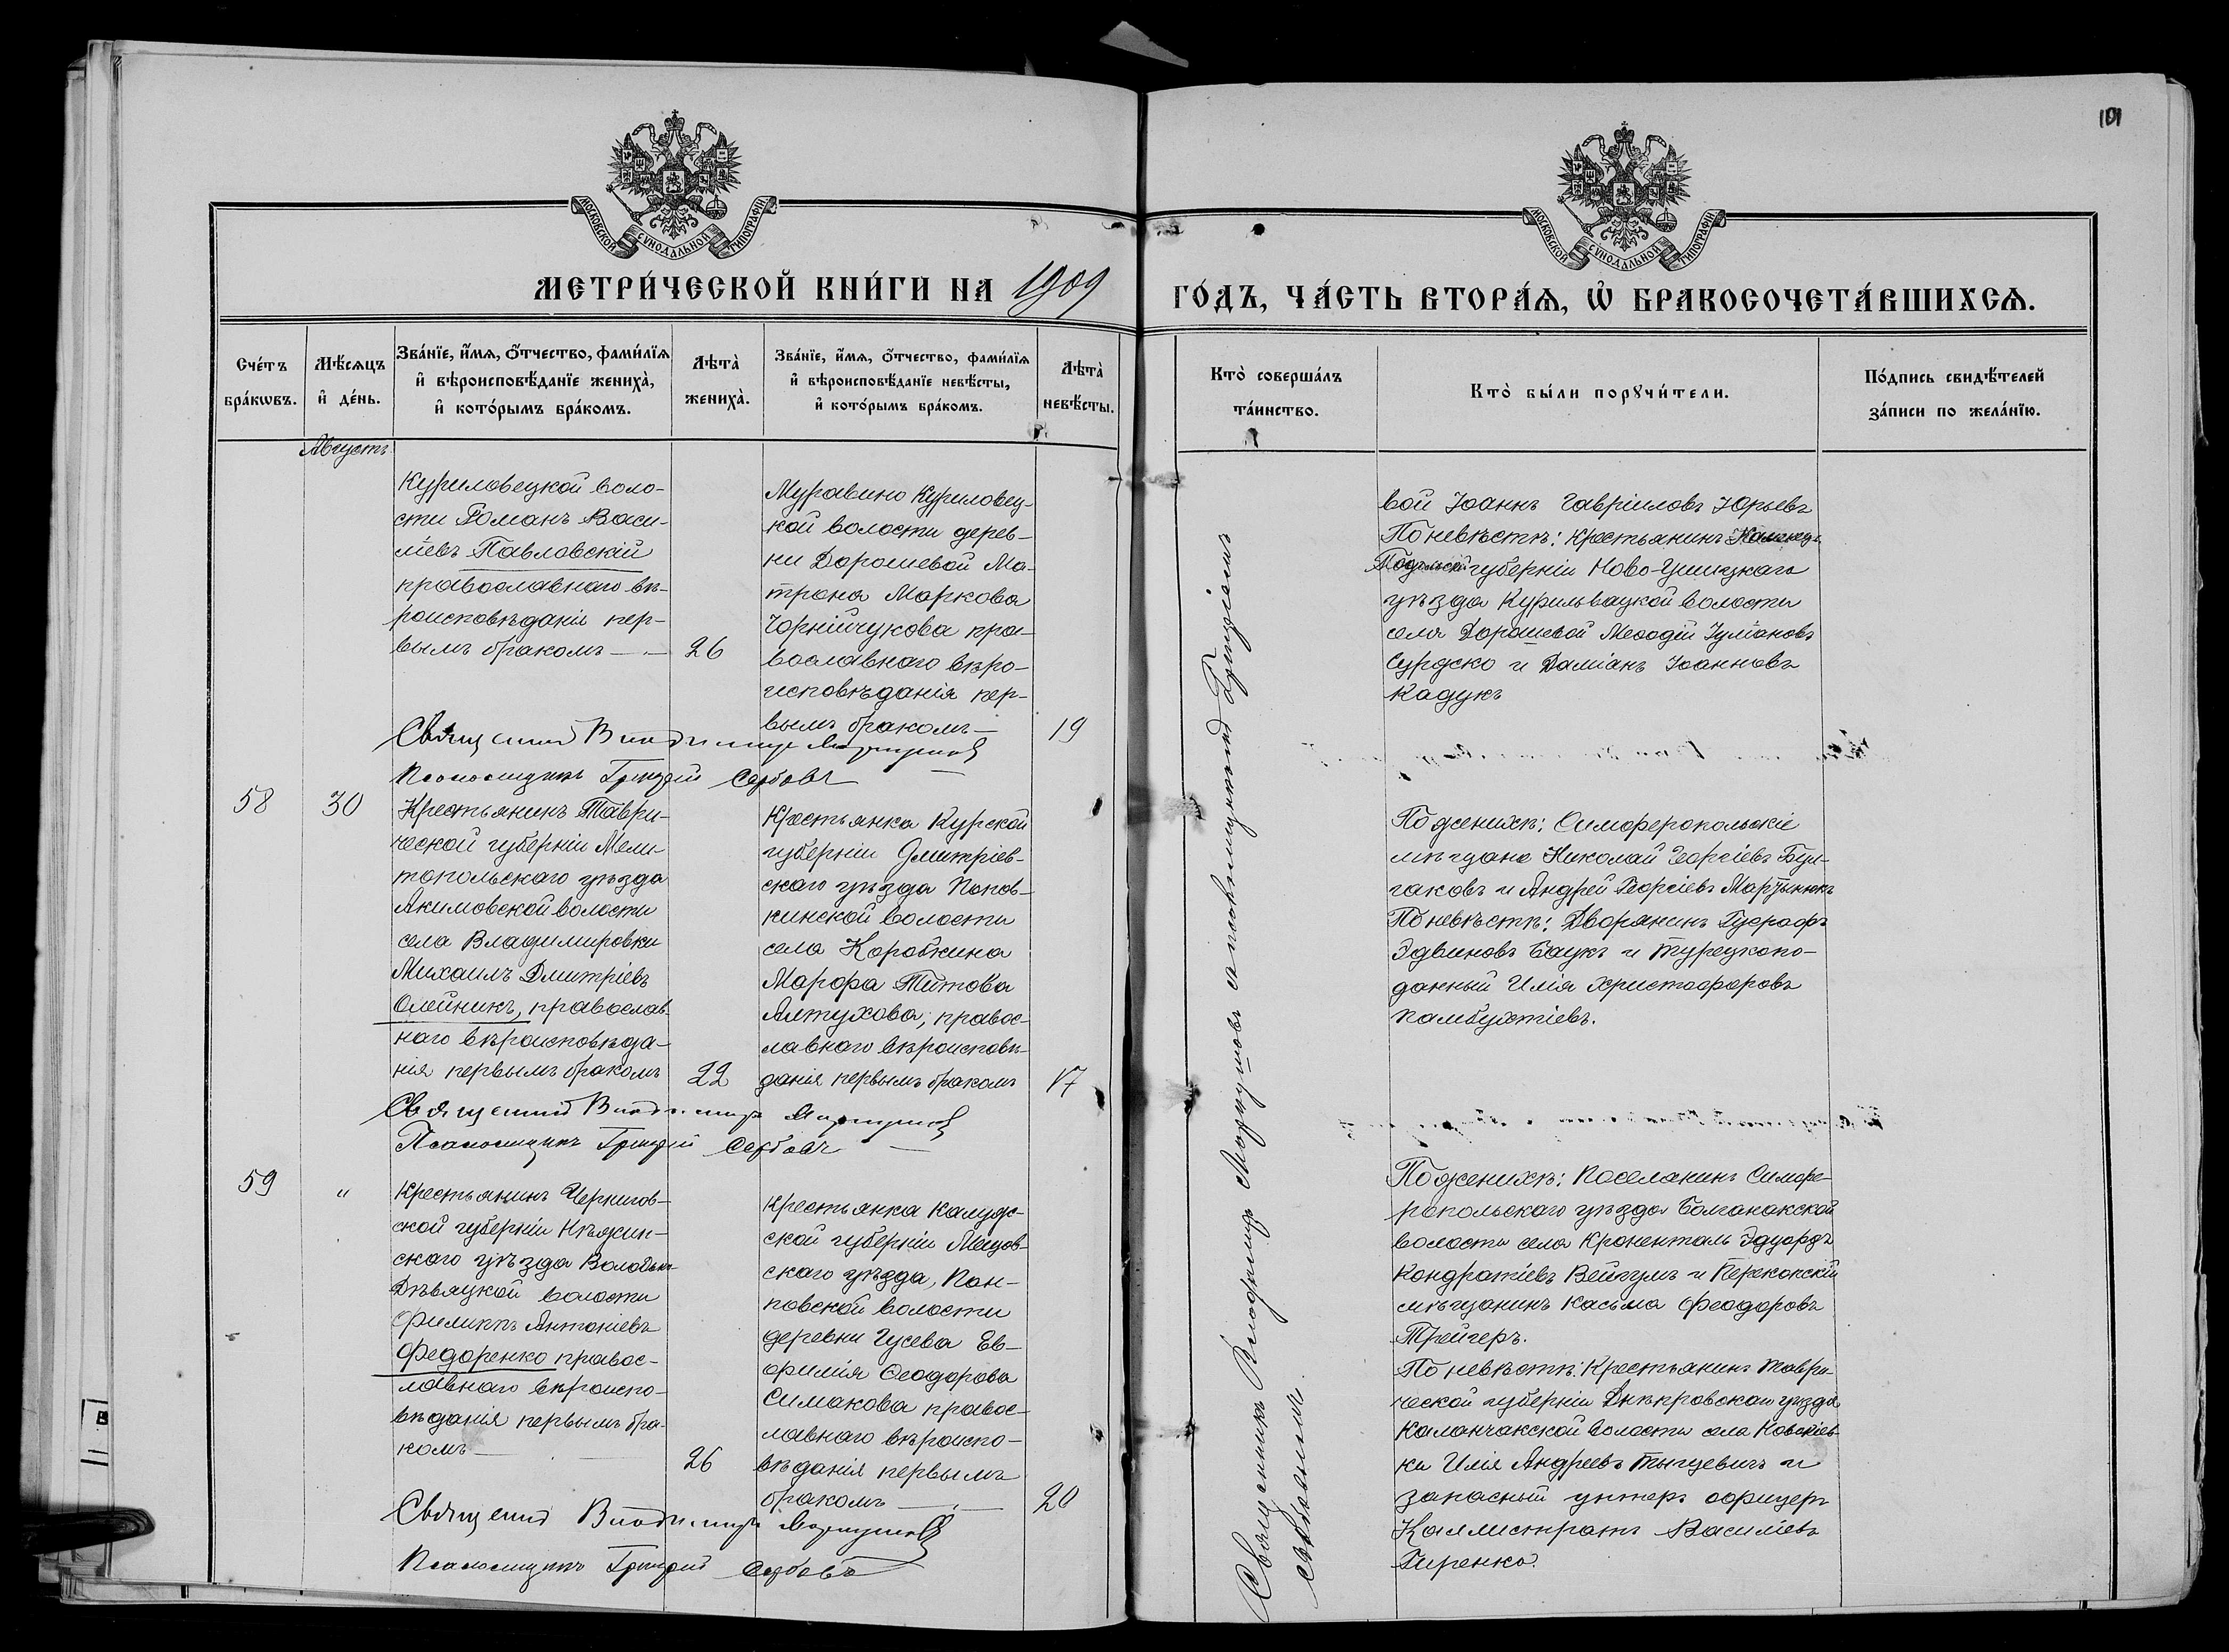 101
МОСКОВСКОЙ СѴНОДАЛЬНОЙ ТИПОГРАФІИ
МОСКОВСКОЙ СѴНОДАЛЬНОЙ ТИПОГРАФІИ
МЕТРИ́ЧЕСКОЙ КНИ́ГИ НА 1909
ГО́ДЪ, ЧА́СТЬ ВТОРА́Ѧ, Ѽ БРАКОСОЧЕТА́ВШИХСѦ.
Сче́тъ
бра́кѡвъ.
Мѣ́сѧцъ
и҆ де́нь.
Зва́нїе, и҆́мѧ, ѻ҆́тчество, фами́лїѧ
и҆ вѣроисповѣ́данїе жениха̀,
и҆ кото́рымъ бра́комъ.
Лѣта̀
жениха̀.
Зва́нїе, и҆́мѧ, ѻ҆́тчество, фами́лїѧ
и҆ вѣроисповѣ́данїе невѣ́сты,
и҆ кото́рымъ бра́комъ.
Лѣта̀
невѣ́сты.
Кто̀ соверша́лъ
та́инство.
Кто̀ бы́ли порꙋчи́тели.
По́дпись свидѣ́телей
за́писи по жела́нїю.
Августъ
Куриловецкой воло-
сти Романъ Васи-
ліевъ Павловскій
православнаго вѣ-
роисповѣданія пер-
вымъ бракомъ 26
Муравино Куриловец-
кой волости дерев-
ни Дорошевой Ма-
трона Маркова
Чорнійчукова пра-
вославнаго вѣро-
исповѣданія пер-
вымъ бракомъ 19
Священникъ Владимиръ
Псаломщикъ Григорій Сербовъ
вой Іоаннъ Гавріиловъ Юрьевъ
По невѣстѣ: Крестьянинъ
Подольской губерніи Ново-Ушицкаго
уѣзда Курильвацкой волости
села Дорошевой Меѳодій Іуліановъ
Сурдско и Даміанъ Іоанновъ
Кадукъ
58 30
Крестьянинъ Таври-
ческой губерніи Мели-
топольскаго уѣзда
Акимовской волости
села Владимировки
Михаилъ Дмитріевъ
Олейникъ, православ-
наго вѣроисповѣда-
нія первымъ бракомъ 22
Крестьянка Курской
губерніи Дмитріев-
скаго уѣзда Попов-
кинской волости
села Коробкина
Марфа Титова
Алтухова, правос-
лавнаго вѣроисповѣ-
данія первымъ бракомъ 17
Священникъ Владимиръ
Псаломщикъ Григорій Сербовъ
По женихѣ: Симферопольскіе
мѣщане Николай Георгіевъ Бул-
гаковъ и Андрей Георгіевъ Мартынюкъ
По невѣстѣ: Дворянинъ
Эдвиновъ Баукъ и турецкопо-
данный Илія Христофоровъ
Памбухтіевъ.
59 "
Крестьянинъ Чернигов-
ской губерніи Нѣжин-
скаго уѣзда
Дѣвацкой волости
Филиппъ Антоніевъ
Федоренко правос-
лавнаго вѣроиспо-
вѣданія первымъ бра-
комъ 26
Крестьянка Калуж-
ской губерніи Мещов-
скаго уѣзда, Поп-
повской волости
деревни Гусева Ев-
фимія Ѳеодорова
Симакова правос-
лавнаго вѣроиспо-
вѣданія первымъ
бракомъ 20
Священникъ Владимиръ
Псаломщикъ Григорій Сербовъ
По женихѣ: Поселянинъ Симфе-
ропольскаго уѣзда Болганакской
волости села Кроненталь Эдуардъ
Кондратіевъ Вейгумъ и Перекопскій
мѣщанинъ Касьма Феодоровъ
Трейгеръ.
По невѣстѣ: Крестьянинъ Таври-
ческой губерніи Днѣпровскаго уѣзда
Каланчакской волости села
ки Илія Андреевъ Тыщевичъ и
запасный унтеръ офицеръ
Каллистратъ Василіевъ
Гиренко.
Священникъ Владимиръ съ псаломщикомъ Григоріемъ
Сербовымъ.